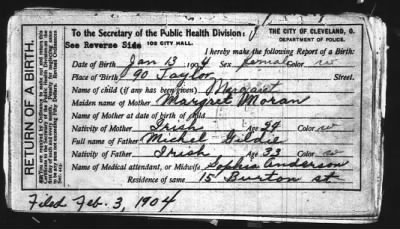 To the Secretary of the Public Health Division:
THE CITY OF CLEVELAND, O.
DEPARTMENT OF POLICE.
See Reverse Side 103 CITY HALL.
I hereby make the following Report of a Birth:
Date of Birth Jan 13 1904 Sex female Color w
Place of Birth 90 Taylor Street.
Name of child (if any has been given) Margaret
Maiden name of Mother Margret Moran
Name of Mother at date of birth of child
Nativity of Mother Irish Age 29 Color w
Full name of Father Michel Gildie
Nativity of Father Irish Age 33 Color w
Name of Medical attendant, or Midwife Sophia Anderson
Residence of same 15 Burton st
Filed Feb. 3, 1904
RETURN OF A BIRTH.